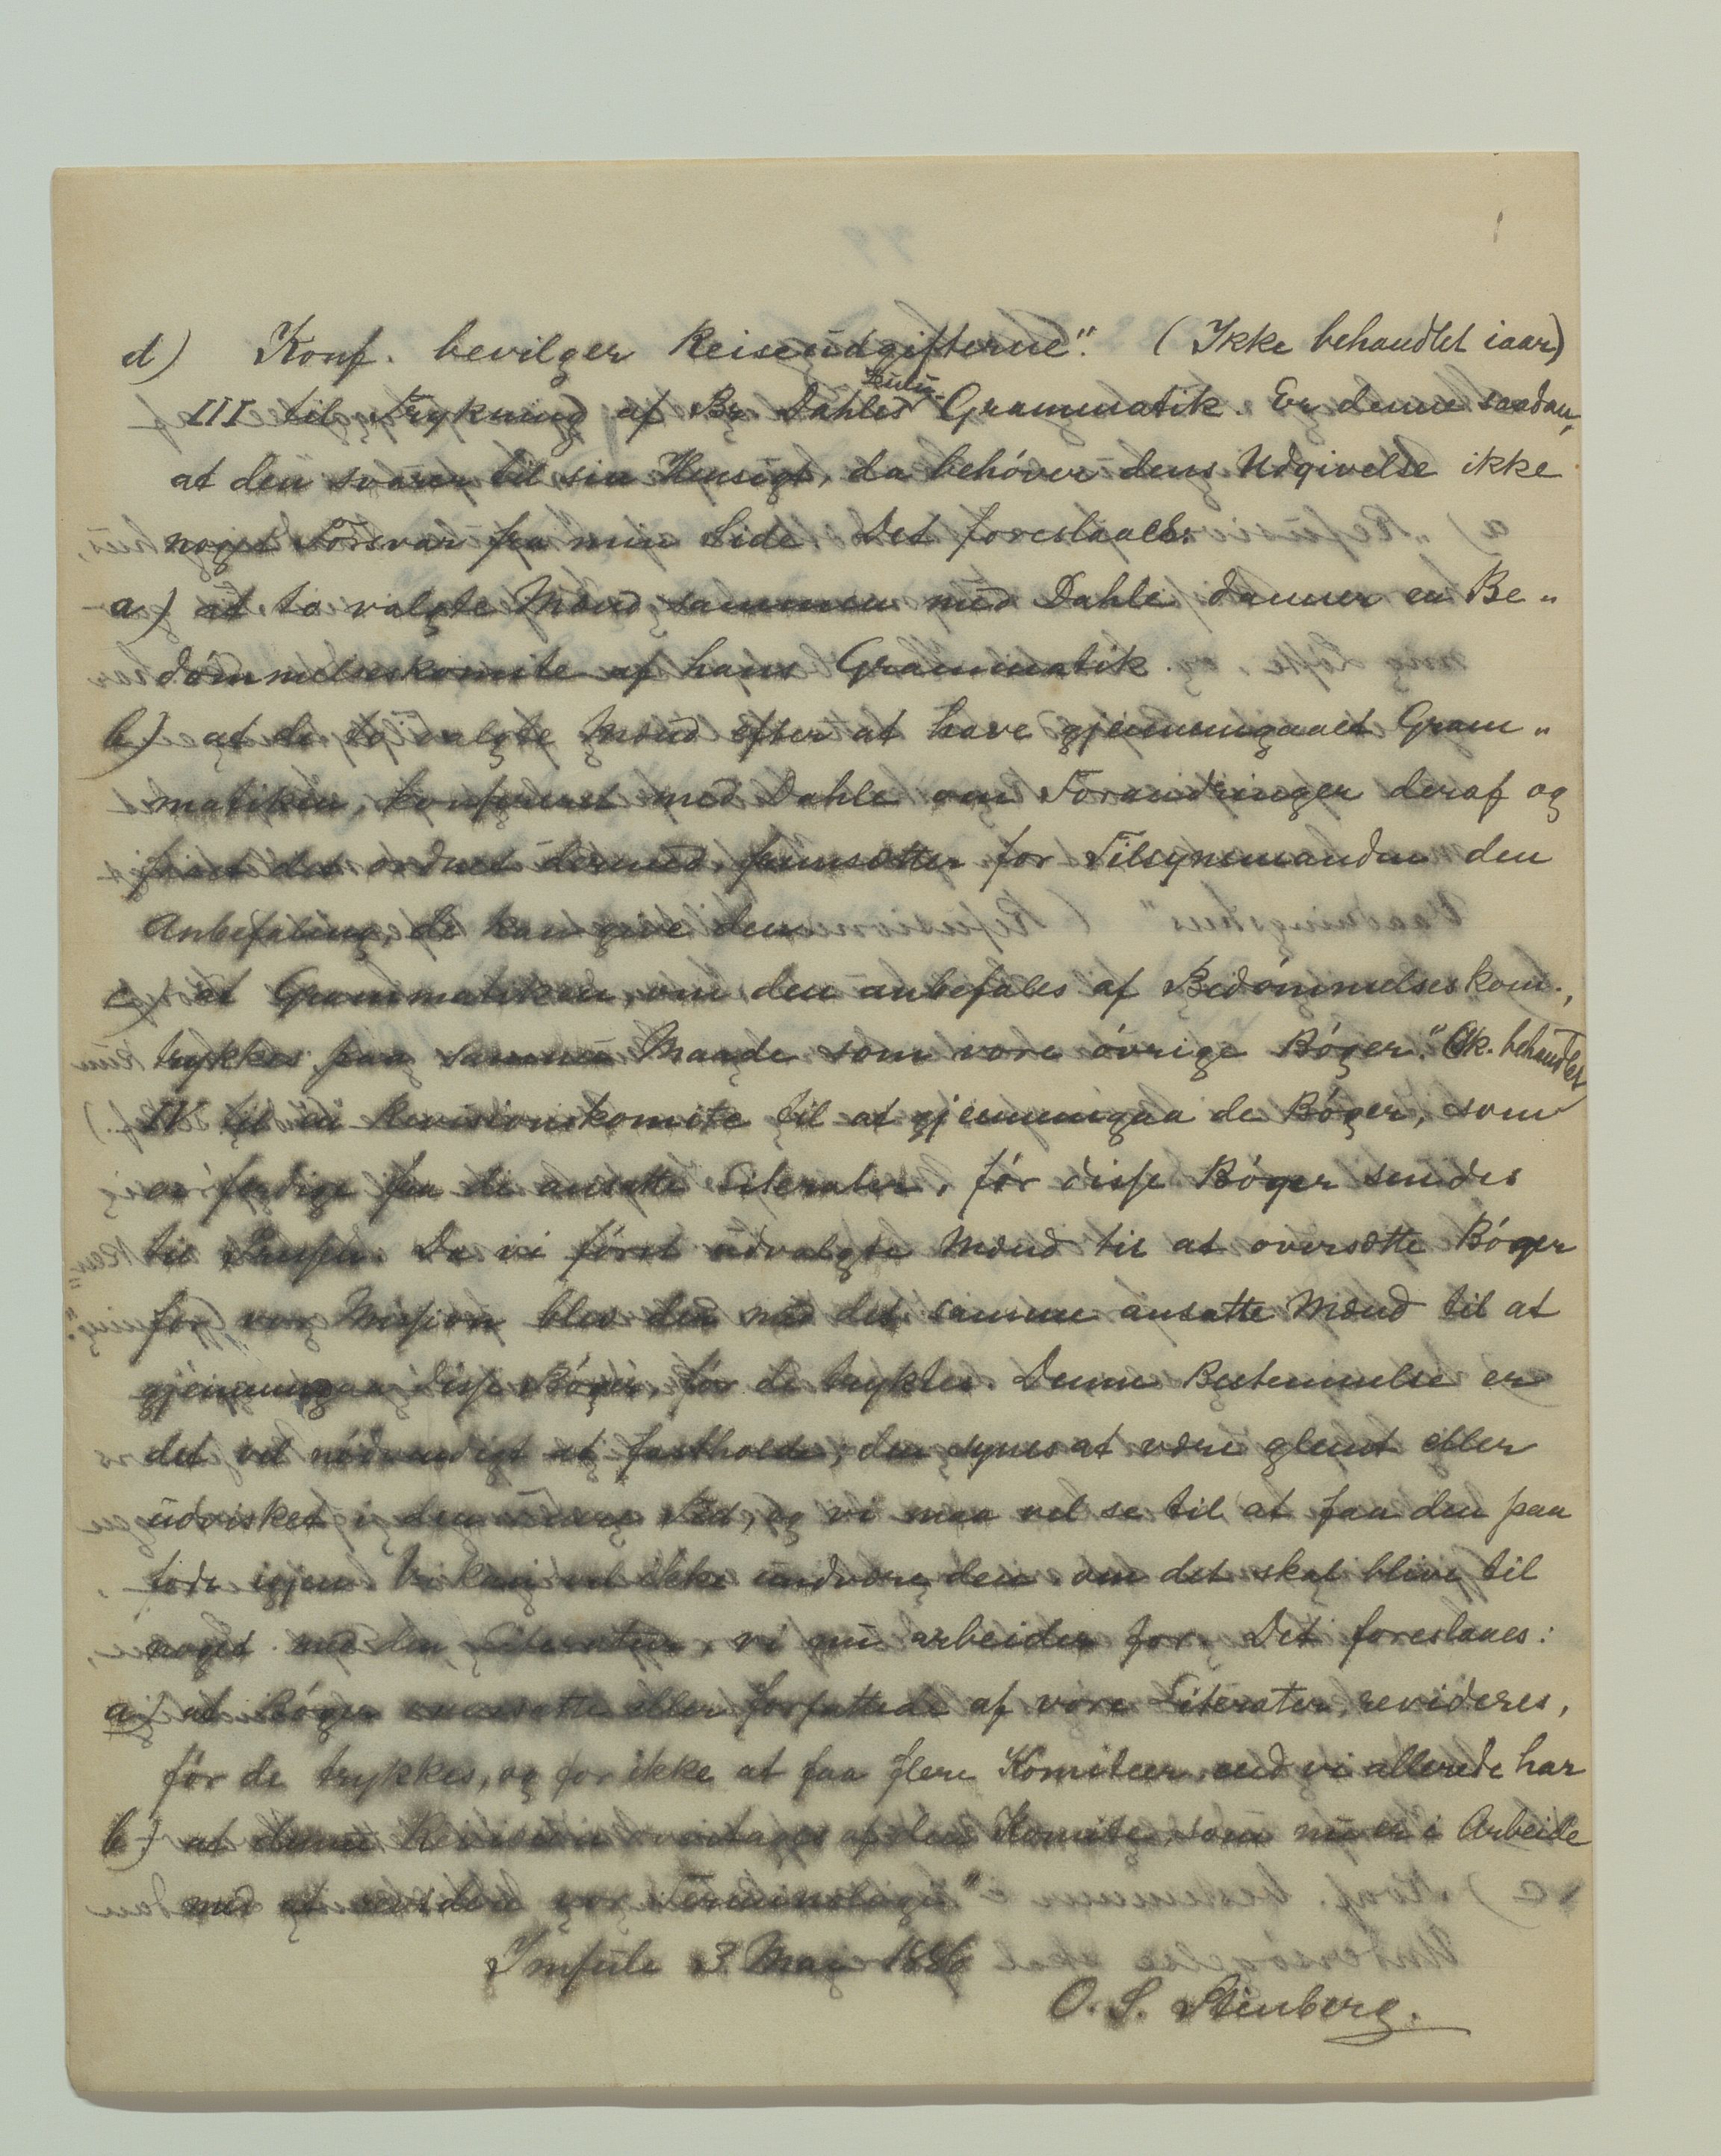 d) Konf. bevilger Reiseudgifterne". (Ikke behandlet iaar)
III til Trykning af Br. Dahles Zulu- Grammatik. Er denne saadan,
at den svarer til sin Hensigt, da behóver dens Udgivelse ikke
noget Forsvar fra min Side. Det foreslaaes:
a) at to valgte Mænd sammen med Dahle danner en Be„
dómmelseskomite af hans Grammatik.
b) at de to valgte Mænd efter at have gjennemgaaet Gram„
matiken, konfereret med Dahle om Forandringer deraf og
faaet det ordnet dermed, fremsætter for Tilsynsmanden den
Anbefaling, de kan give den
c) at Grammatiken, om den anbefales af Bedómmelseskom.,
trykkes paa samme Maade som vore óvrige Bóger." (Ik. behandlet
IV til en Revisionskomite til at gjennemgaa de Bóger, som
er færdige fra de ansatte Literater, fór disse Bóger sendes
til Pressen. Da vi fórst udvalgte Mænd til at oversætte Bóger
for vor Mission blev der med det samme ansatte Mænd til at
gjennemgaa disse Bóger, fór de tryktes. Denne Bestemmelse er
det vel nódvendigt at fastholde; den synes at være glemt eller
udvisket i den senere Tid, og vi maa vel se til at faa den paa
fode igjen. Vi kan vel ikke undvære den, om det skal blive til
noget med den Literatur, vi nu arbeider for. Det foreslaaes:
a) at Bóger oversatte eller forfattede af vore Literater, revideres,
fór de trykkes, og for ikke at faa flere Komiteer end vi allerede har
b) at denne Revision overtages af den Komite, som nu er i Arbeide
med at revidere vor Terminologi"
Imfule 3 Mai 1886
O. S. Steenberg.